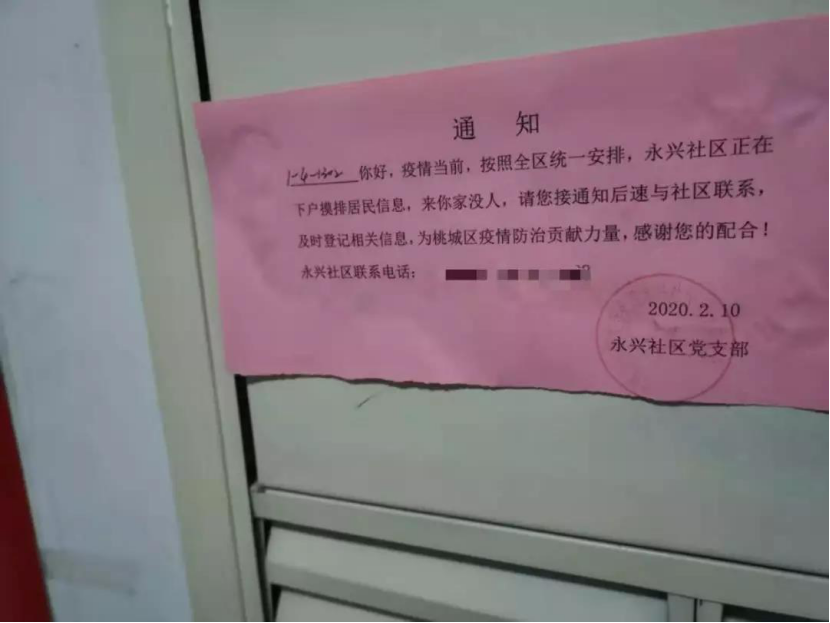 通 知
1-4-1302 你好，疫情当前，按照全区统一安排，永兴社区正在
下户摸排居民信息，来你家没人，请您接通知后速与社区联系，
及时登记相关信息，为桃城区疫情防治贡献力量，感谢您的配合！
永兴社区联系电话：
2020.2.10
永兴社区党支部